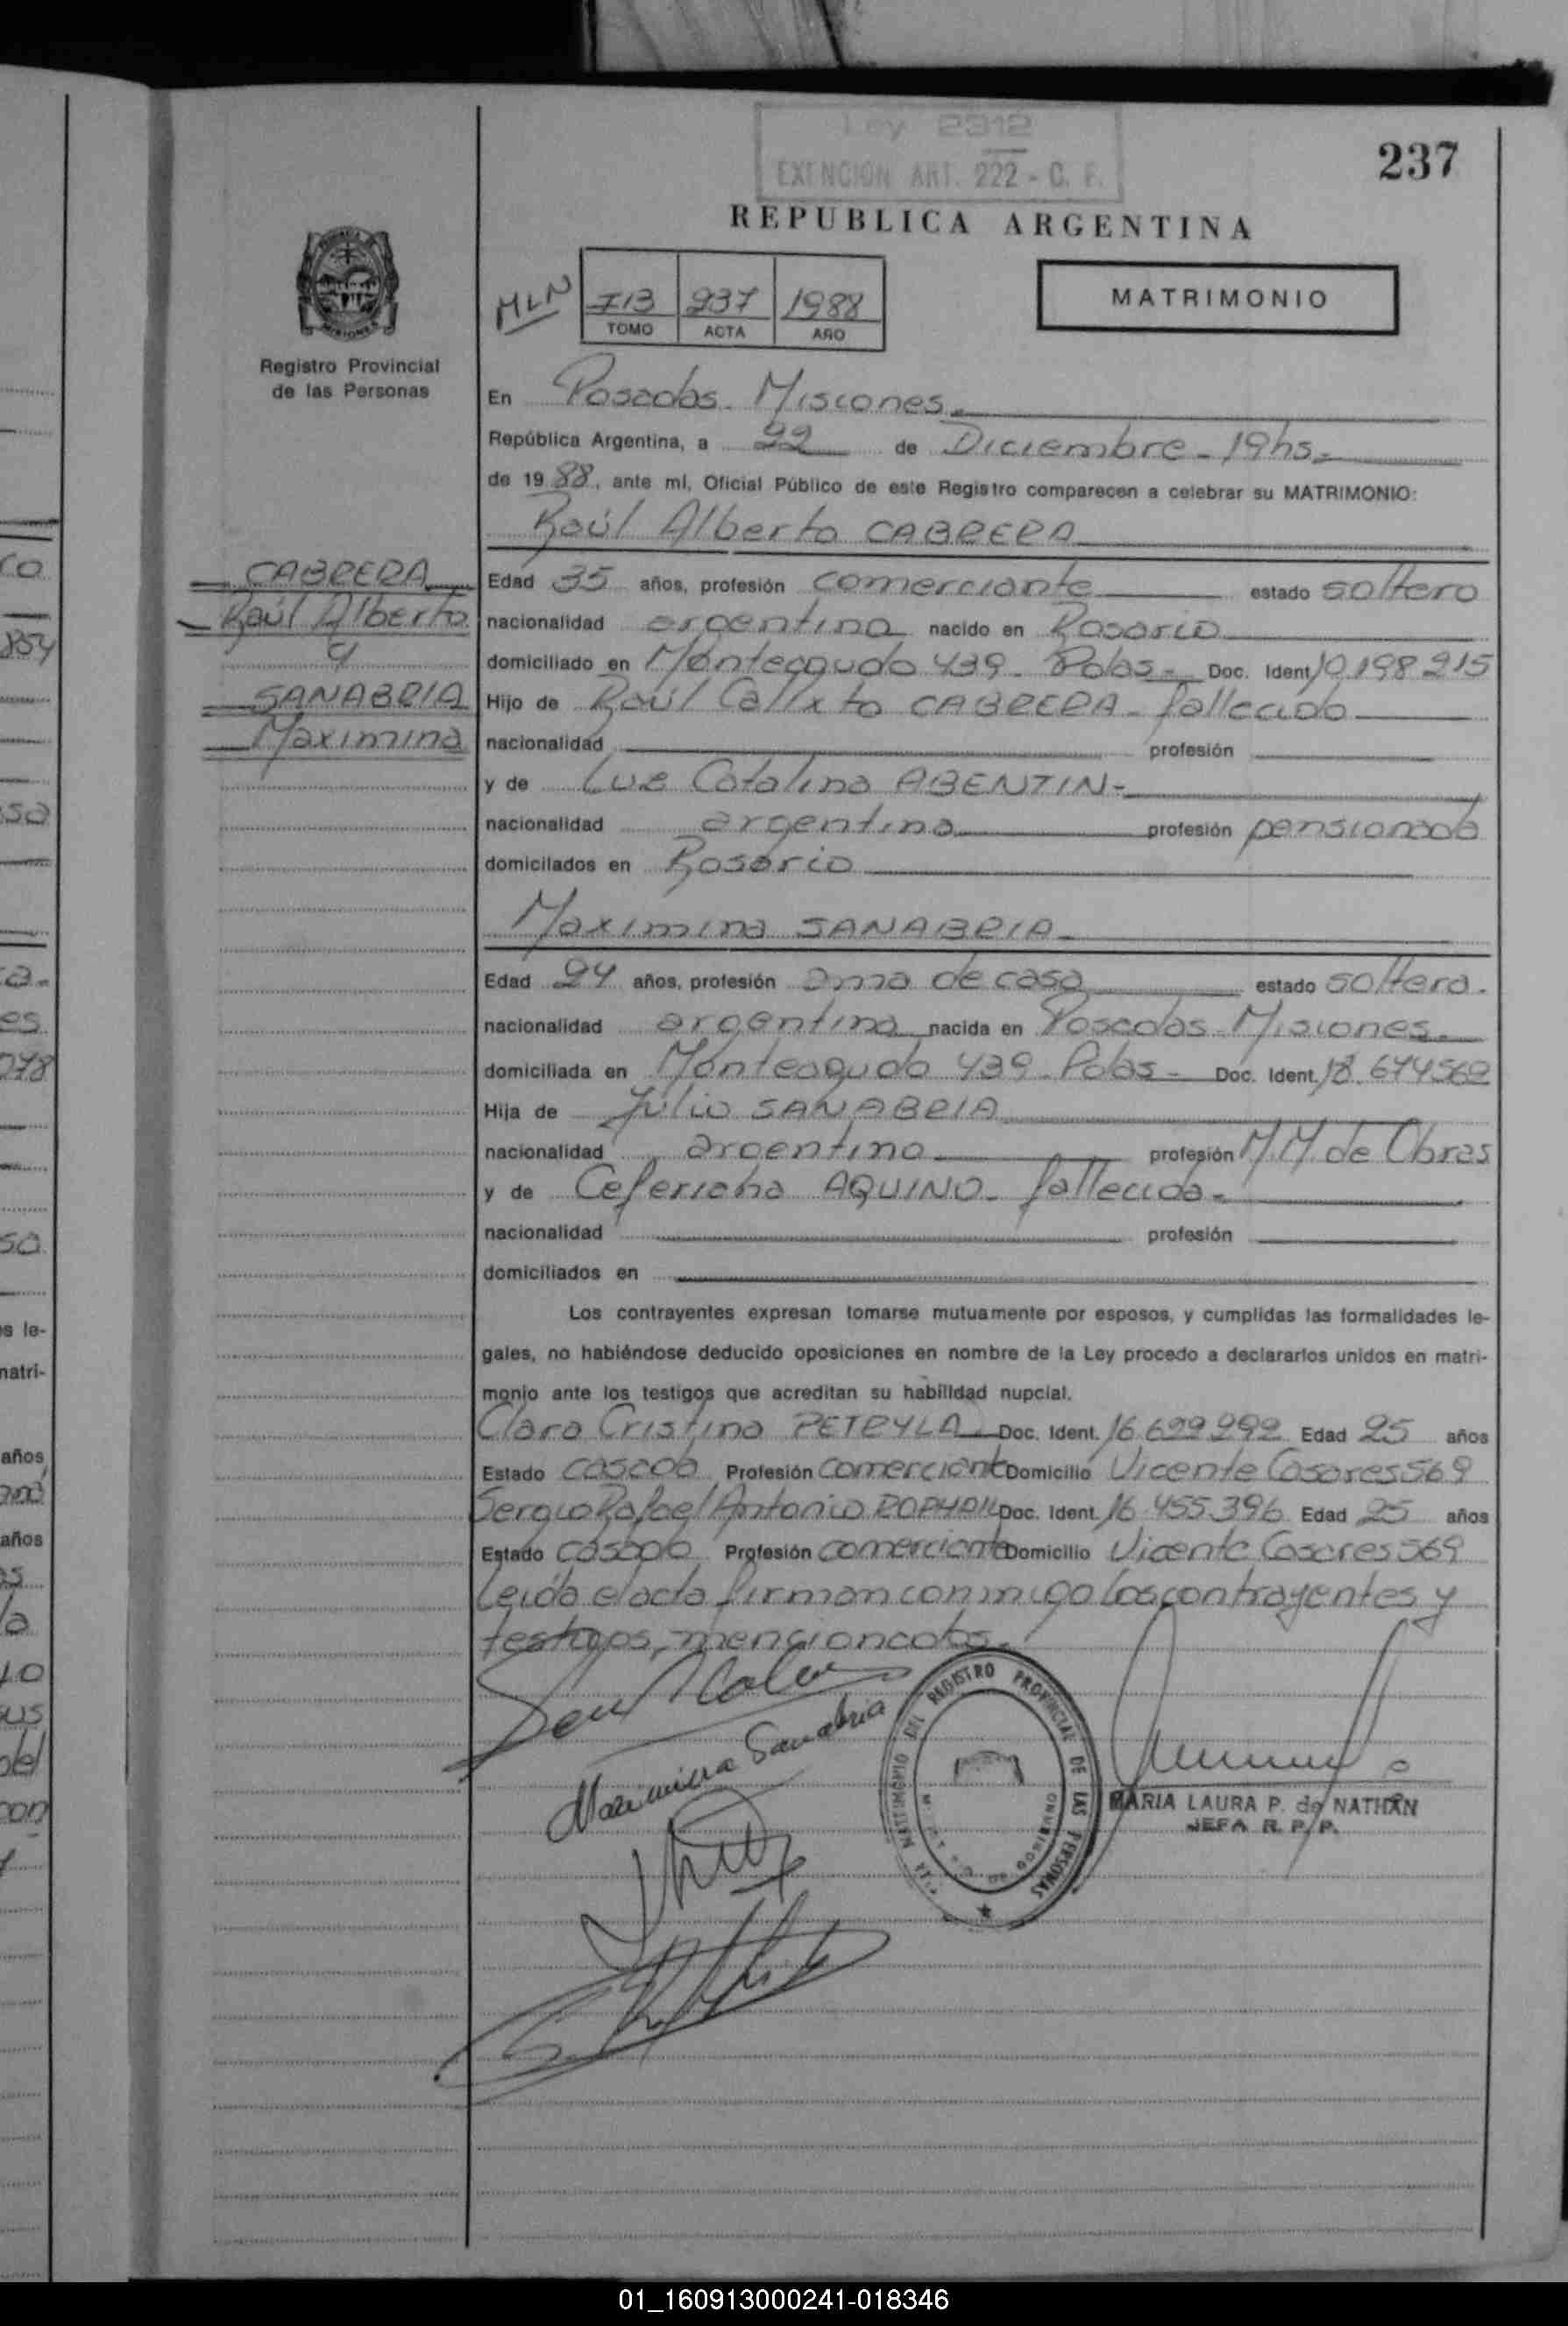 Ley 2312
EXENCION ART. 222 - C. F.
237
REPUBLICA ARGENTINA
MLN
713 237 1988
TOMO ACTA AÑO
MATRIMONIO
Registro Provincial
de las Personas
En Posadas - Misiones -
República Argentina, a 22 de Diciembre - 19hs -
de 19 88, ante mí, Oficial Público de este Registro comparecen a celebrar su MATRIMONIO:
Raúl Alberto CABRERA
CABRERA
Raúl Alberto
y
SANABRIA
Maximina
Edad 35 años, profesión comerciante estado soltero
nacionalidad argentina nacido en Rosario
domiciliado en Monteagudo 439 - Pdas - Doc. Ident. 10.198 215
Hijo de Raúl Calixto CABRERA - fallecido
nacionalidad profesión
y de Luz Catalina ABENTIN -
nacionalidad argentina profesión pensionada
domicilados en Rosario
Maximina SANABRIA -
Edad 24 años, profesión ama de casa estado soltera -
nacionalidad argentina nacida en Posadas - Misiones -
domiciliada en Monteagudo 439 - Pdas - Doc. Ident. 18.674562
Hija de Julio SANABRIA
nacionalidad argentina profesión M.M. de Obras
y de Ceferiana AQUINO - fallecida -
nacionalidad profesión
domiciliados en
Los contrayentes expresan tomarse mutuamente por esposos, y cumplidas las formalidades le-
gales, no habiéndose deducido oposiciones en nombre de la Ley procedo a declararlos unidos en matri-
monio ante los testigos que acreditan su habilidad nupcial.
Clara Cristina PETRYLA Doc. Ident. 16.629 292 Edad 25 años
Estado casada Profesión comerciante Domicilio Vicente Casares 569
Sergio Rafael Antonio Doc. Ident. 16.455.396 Edad 25 años
Estado casado Profesión comerciante Domicilio Vicente Casares 569
Leída el acta firman conmigo los contrayentes y
testigos, mencionados -
Maximina Sanabria
DEL REGISTRO PROVINCIAL DE LAS PERSONAS
MARIA LAURA P. de NATHAN
JEFA R. P. P.
01_160913000241-018346